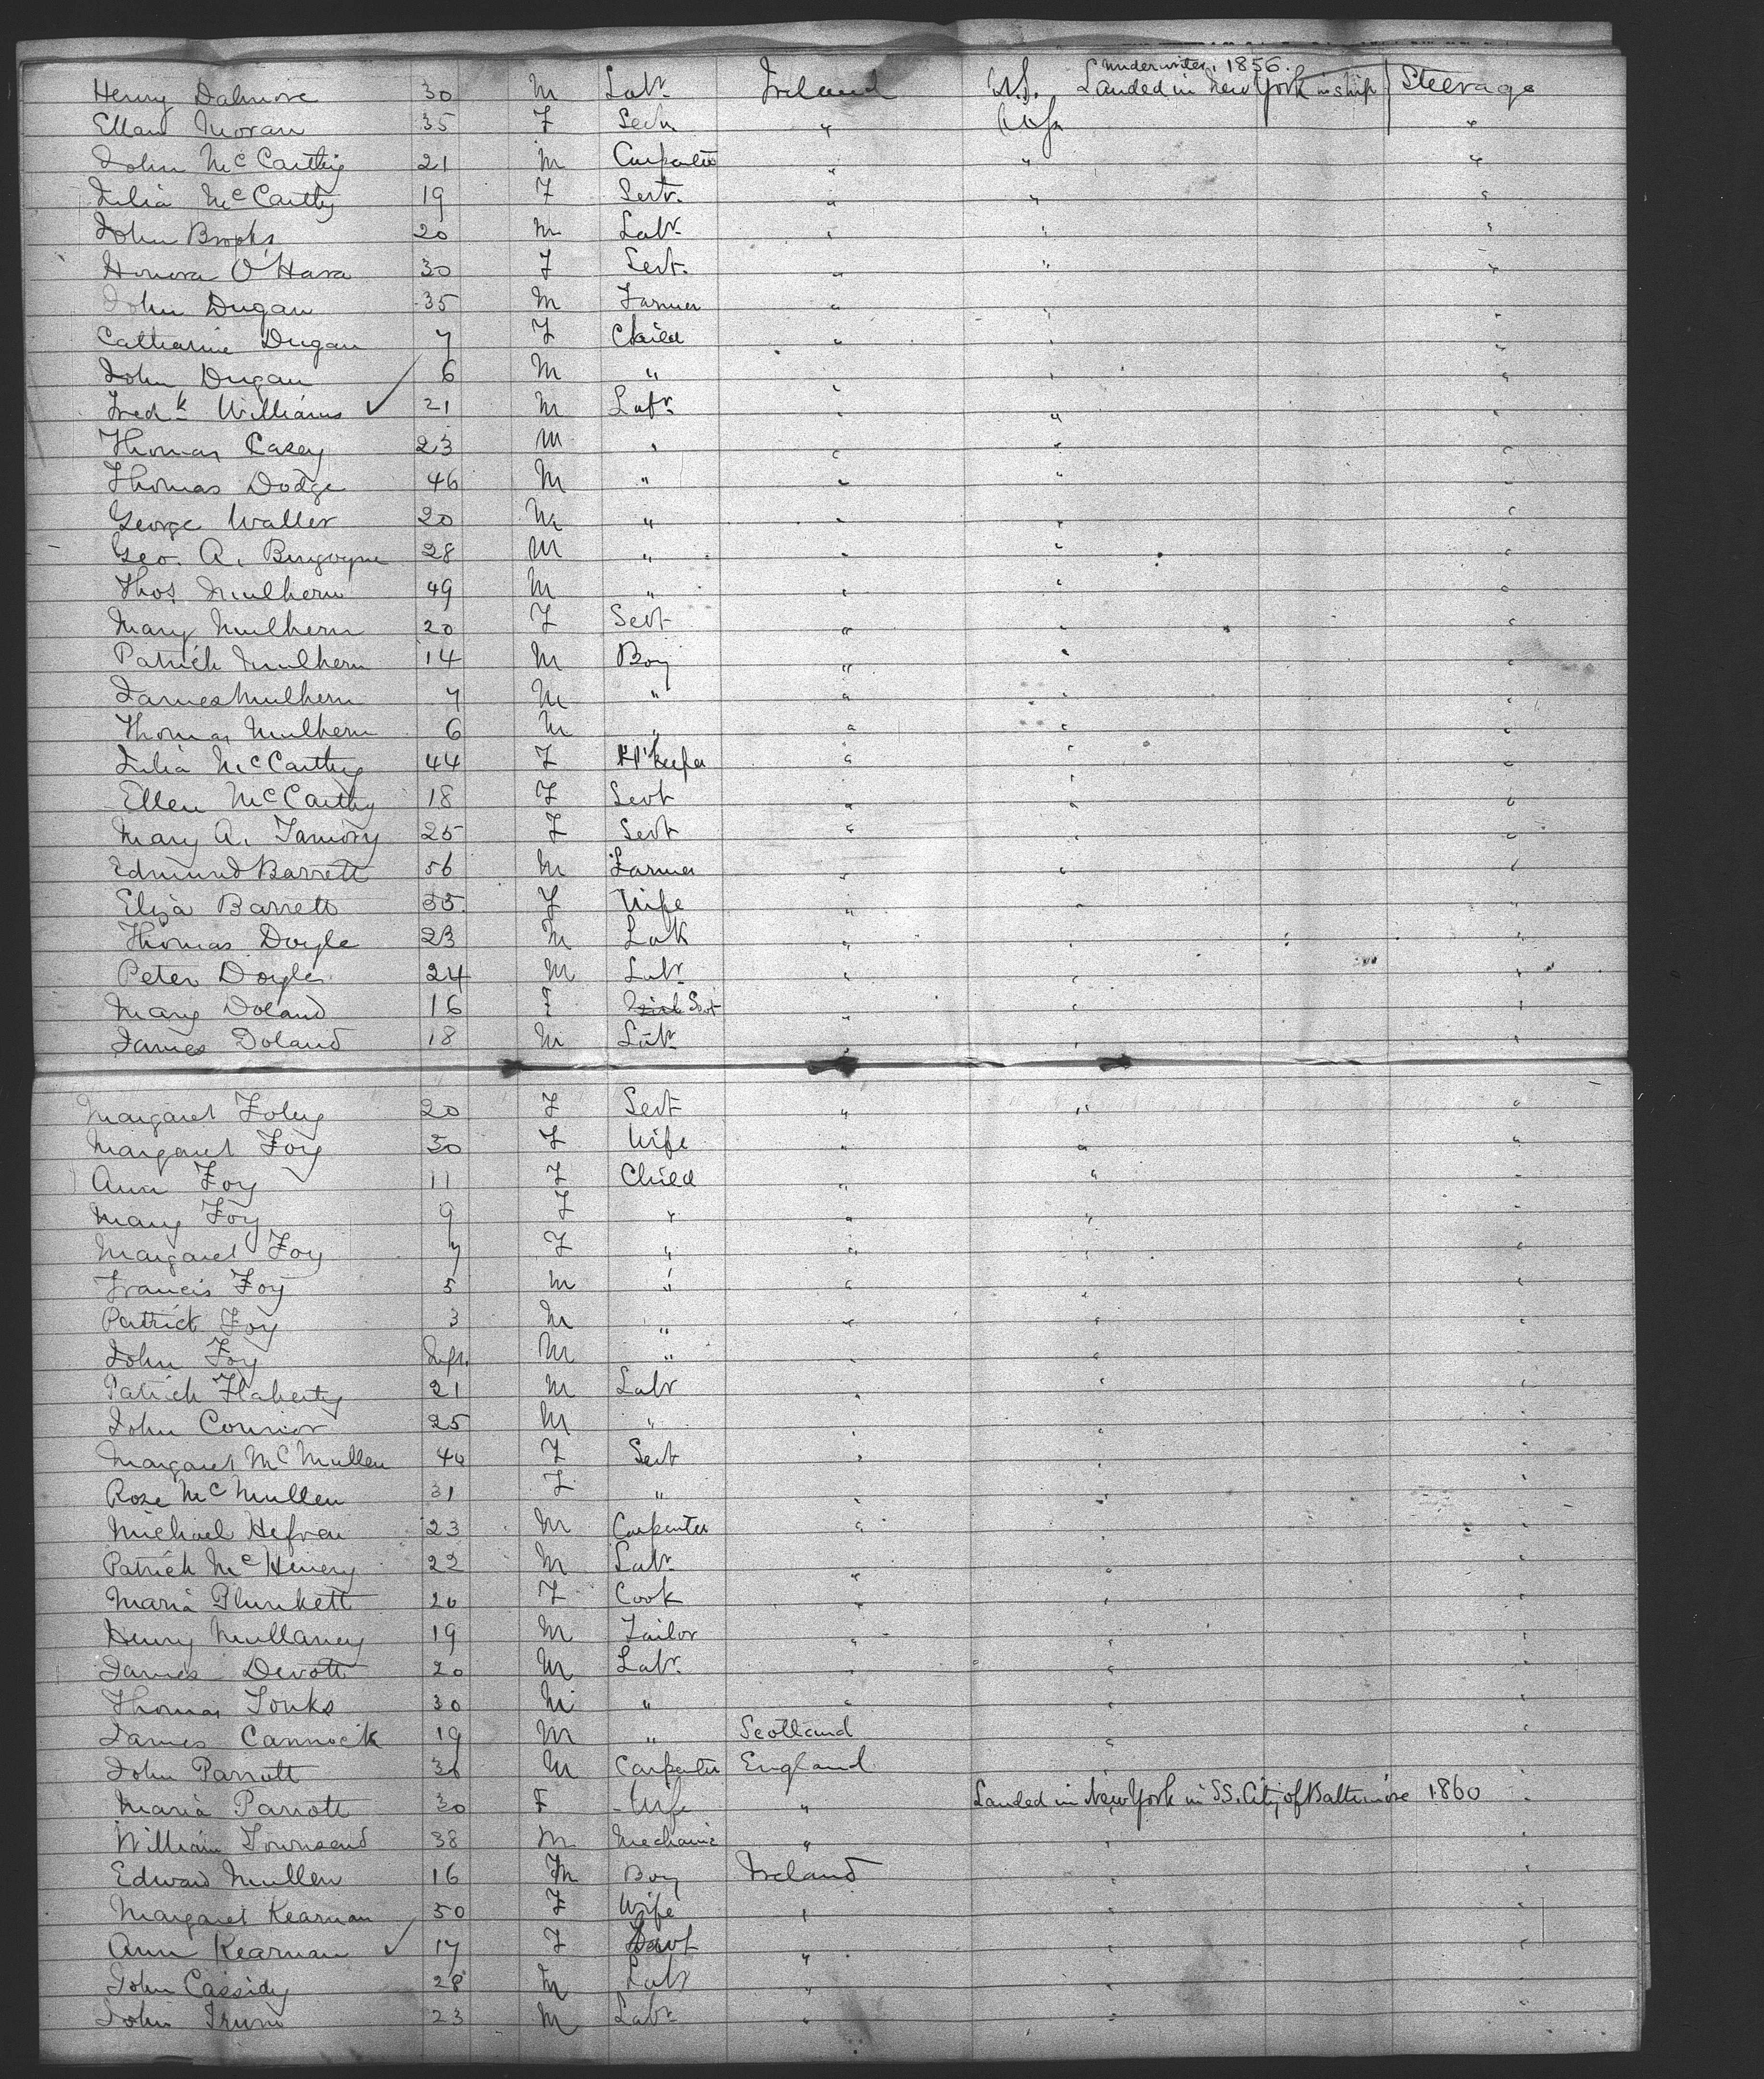 Underwriter, 1856.
Henry Dalmore 30 M Labr. Ireland U.S. Landed in New York in ship Steerage
Ellen Moran 35 F Servt. " "
John McCarthy 21 M Carpenter " " "
Julia McCarthy 19 F Servt. " " "
John Brooks 20 M Labr. " " "
Honora O'Hara 30 F Servt. " " "
John Dugan 35 M Farmer " " "
Catharine Dugan 7 F Child " " "
John Dugan 6 M " " " "
Fredk. Williams ✓ 21 M Labr. " " "
Thomas Casey 23 M " " " "
Thomas Dodge 46 M " " " "
George Waller 20 M " " " "
Geo. A. Burgoyne 28 M " " " "
Thos Mulhern 49 M " " " "
Mary Mulhern 20 F Servt " " "
Patrick Mulhern 14 M Boy " " "
James Mulhern 7 M " " " "
Thomas Mulhern 6 M " " " "
Julia McCarthy 44 F H'keeper " " "
Ellen McCarthy 18 F Servt " " "
Mary A. 25 F Servt " " "
Edmund Barrett 56 M Farmer " " "
Eliza Barrett 55 F Wife " " "
Thomas Doyle 23 M Lab " " "
Peter Doyle 24 M Labr. " " "
Mary Doland 16 F Servt " " "
James Doland 18 M Labr. " " "
Margaret Foley 20 F Servt " " "
Margaret Foy 30 F Wife " " "
Ann Foy 11 F Child " " "
Mary Foy 9 F " " " "
Margaret Foy 7 F " " " "
Francis Foy 5 M " " " "
Patrick Foy 3 M " " " "
John Foy Inft. M " " " "
Patrick Flaherty 21 M Labr " " "
John Connor 25 M " " " "
Margaret McMullen 40 F Servt " " "
Rose McMullen 31 F " " " "
Michael Hefren 23 M Carpenter " " "
Patrick McHenery 22 M Labr. " " "
Maria Plunkett 20 F Cook " " "
Henry Mullaney 19 M Tailor " " "
James Devott 20 M Labr. " " "
Thomas Tonks 30 M " " " "
James Cannock 19 M " Scotland " "
John Parrott 36 M Carpenter England
Maria Parrott 30 F Wife " Landed in New York in SS. City of Baltimore 1860 "
William Townsend 38 M Mechanic " " "
Edward Mullen 16 M Boy Ireland " "
Margaret Kearnan 50 F Wife " " "
Ann Kearnan ✓ 17 F Servt " " "
John Cassidy 28 M Labr " " "
John 23 M Labr. " " "